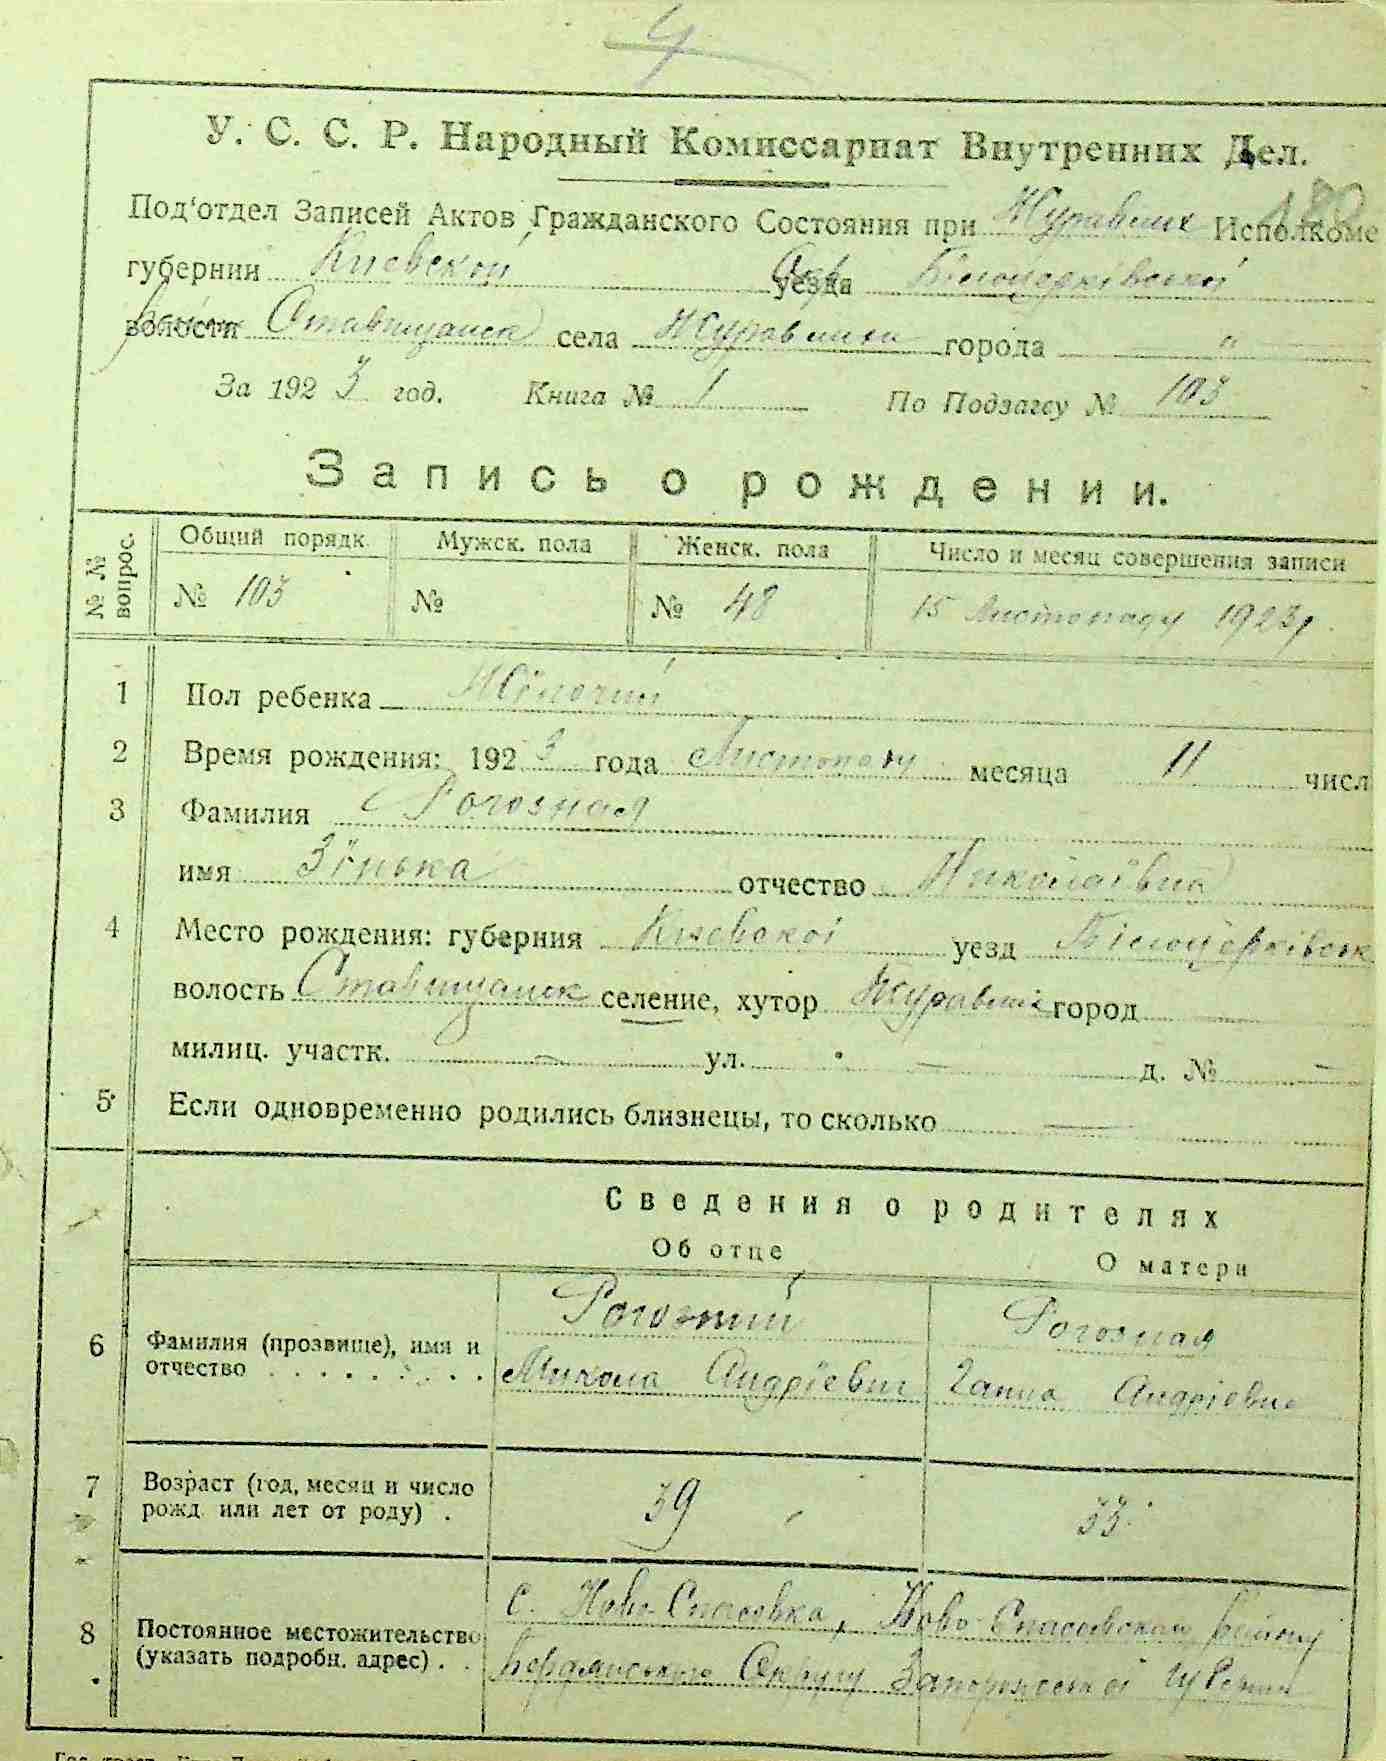 4
У. С. С. Р. Народный Комиссариат Внутренних Дел.
Под'отдел Записей Актов Гражданского Состояния при Журавлих Исполкоме
губернии Киевской Окр уезда Білоцерківської
волости Ставищанск села Журавлихи города "
За 1923 год. Книга № 1 По Подзагсу № 103
Запись о рождении.
№ № вопрос. Общий порядк. Мужск. пола Женск. пола Число и месяц совершения записи
№ 103 № № 48 15 Листопаду 1923
1 Пол ребенка Жіночий
2 Время рождения: 1923 года Листопаду месяца 11 числ
3 Фамилия Рогозная
имя Зінька отчество Николаївна
4 Место рождения: губерния Киевскої уезд Білоцерківськ
волость Ставищанск селение, хутор Журавлих город
милиц. участк. — ул. — д. № —
5 Если одновременно родились близнецы, то сколько —
Сведения о родителях
Об отце О матери
6 Фамилия (прозвище), имя и отчество Рогозний Рогозная
Микола Андрієвич Ганна Андрієвна
7 Возраст (год, месяц и число рожд. или лет от роду) 39 33
8 Постоянное местожительство (указать подробн. адрес) с. Ново-Спасовка, Ново-Спасовском Району
Бердянського Округу Запорожської Губернии